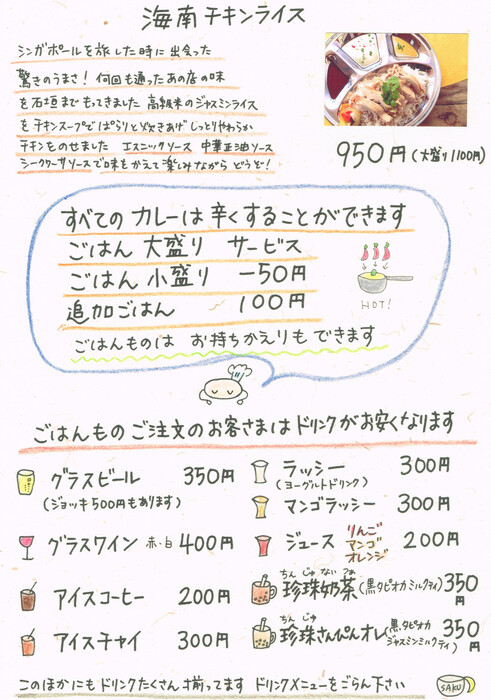 海南チキンライス
シンガポールを旅した時に出会った
驚きのうまさ！何回も通ったあの店の味
を石垣までもってきました 高級米のジャスミンライス
をチキンスープでぱらりと炊きあげしっとりやわらか
チキンものせました エスニックソース 中華醤油ソース
シークワーサソースで味をかえて楽しみながら どうぞ！
950円(大盛り1100円)
すべてのカレーは辛くすることができます
ごはん大盛り サービス
ごはん小盛り －50円
追加ごはん 100円
ごはんものは お持ちかえりもできます
HOT!
ごはんものご注文のお客さまはドリンクがお安くなります
グラスビール 350円
(ジョッキ500円もあります)
グラスワイン 赤・白 400円
アイスコーヒー 200円
アイスチャイ 300円
ラッシー 300円
(ヨーグルトドリンク)
マンゴラッシー 300円
ジュース りんご マンゴ オレンジ 200円
ちん じゅ ない つぁ
珍珠奶茶(黒タピオカミルクティ) 350円
ちん じゅ
珍珠さんぴんオレ(黒タピオカ ジャスミンミルクティ) 350円
このほかにもドリンクたくさん揃ってます ドリンクメニューをごらん下さい
SAKU